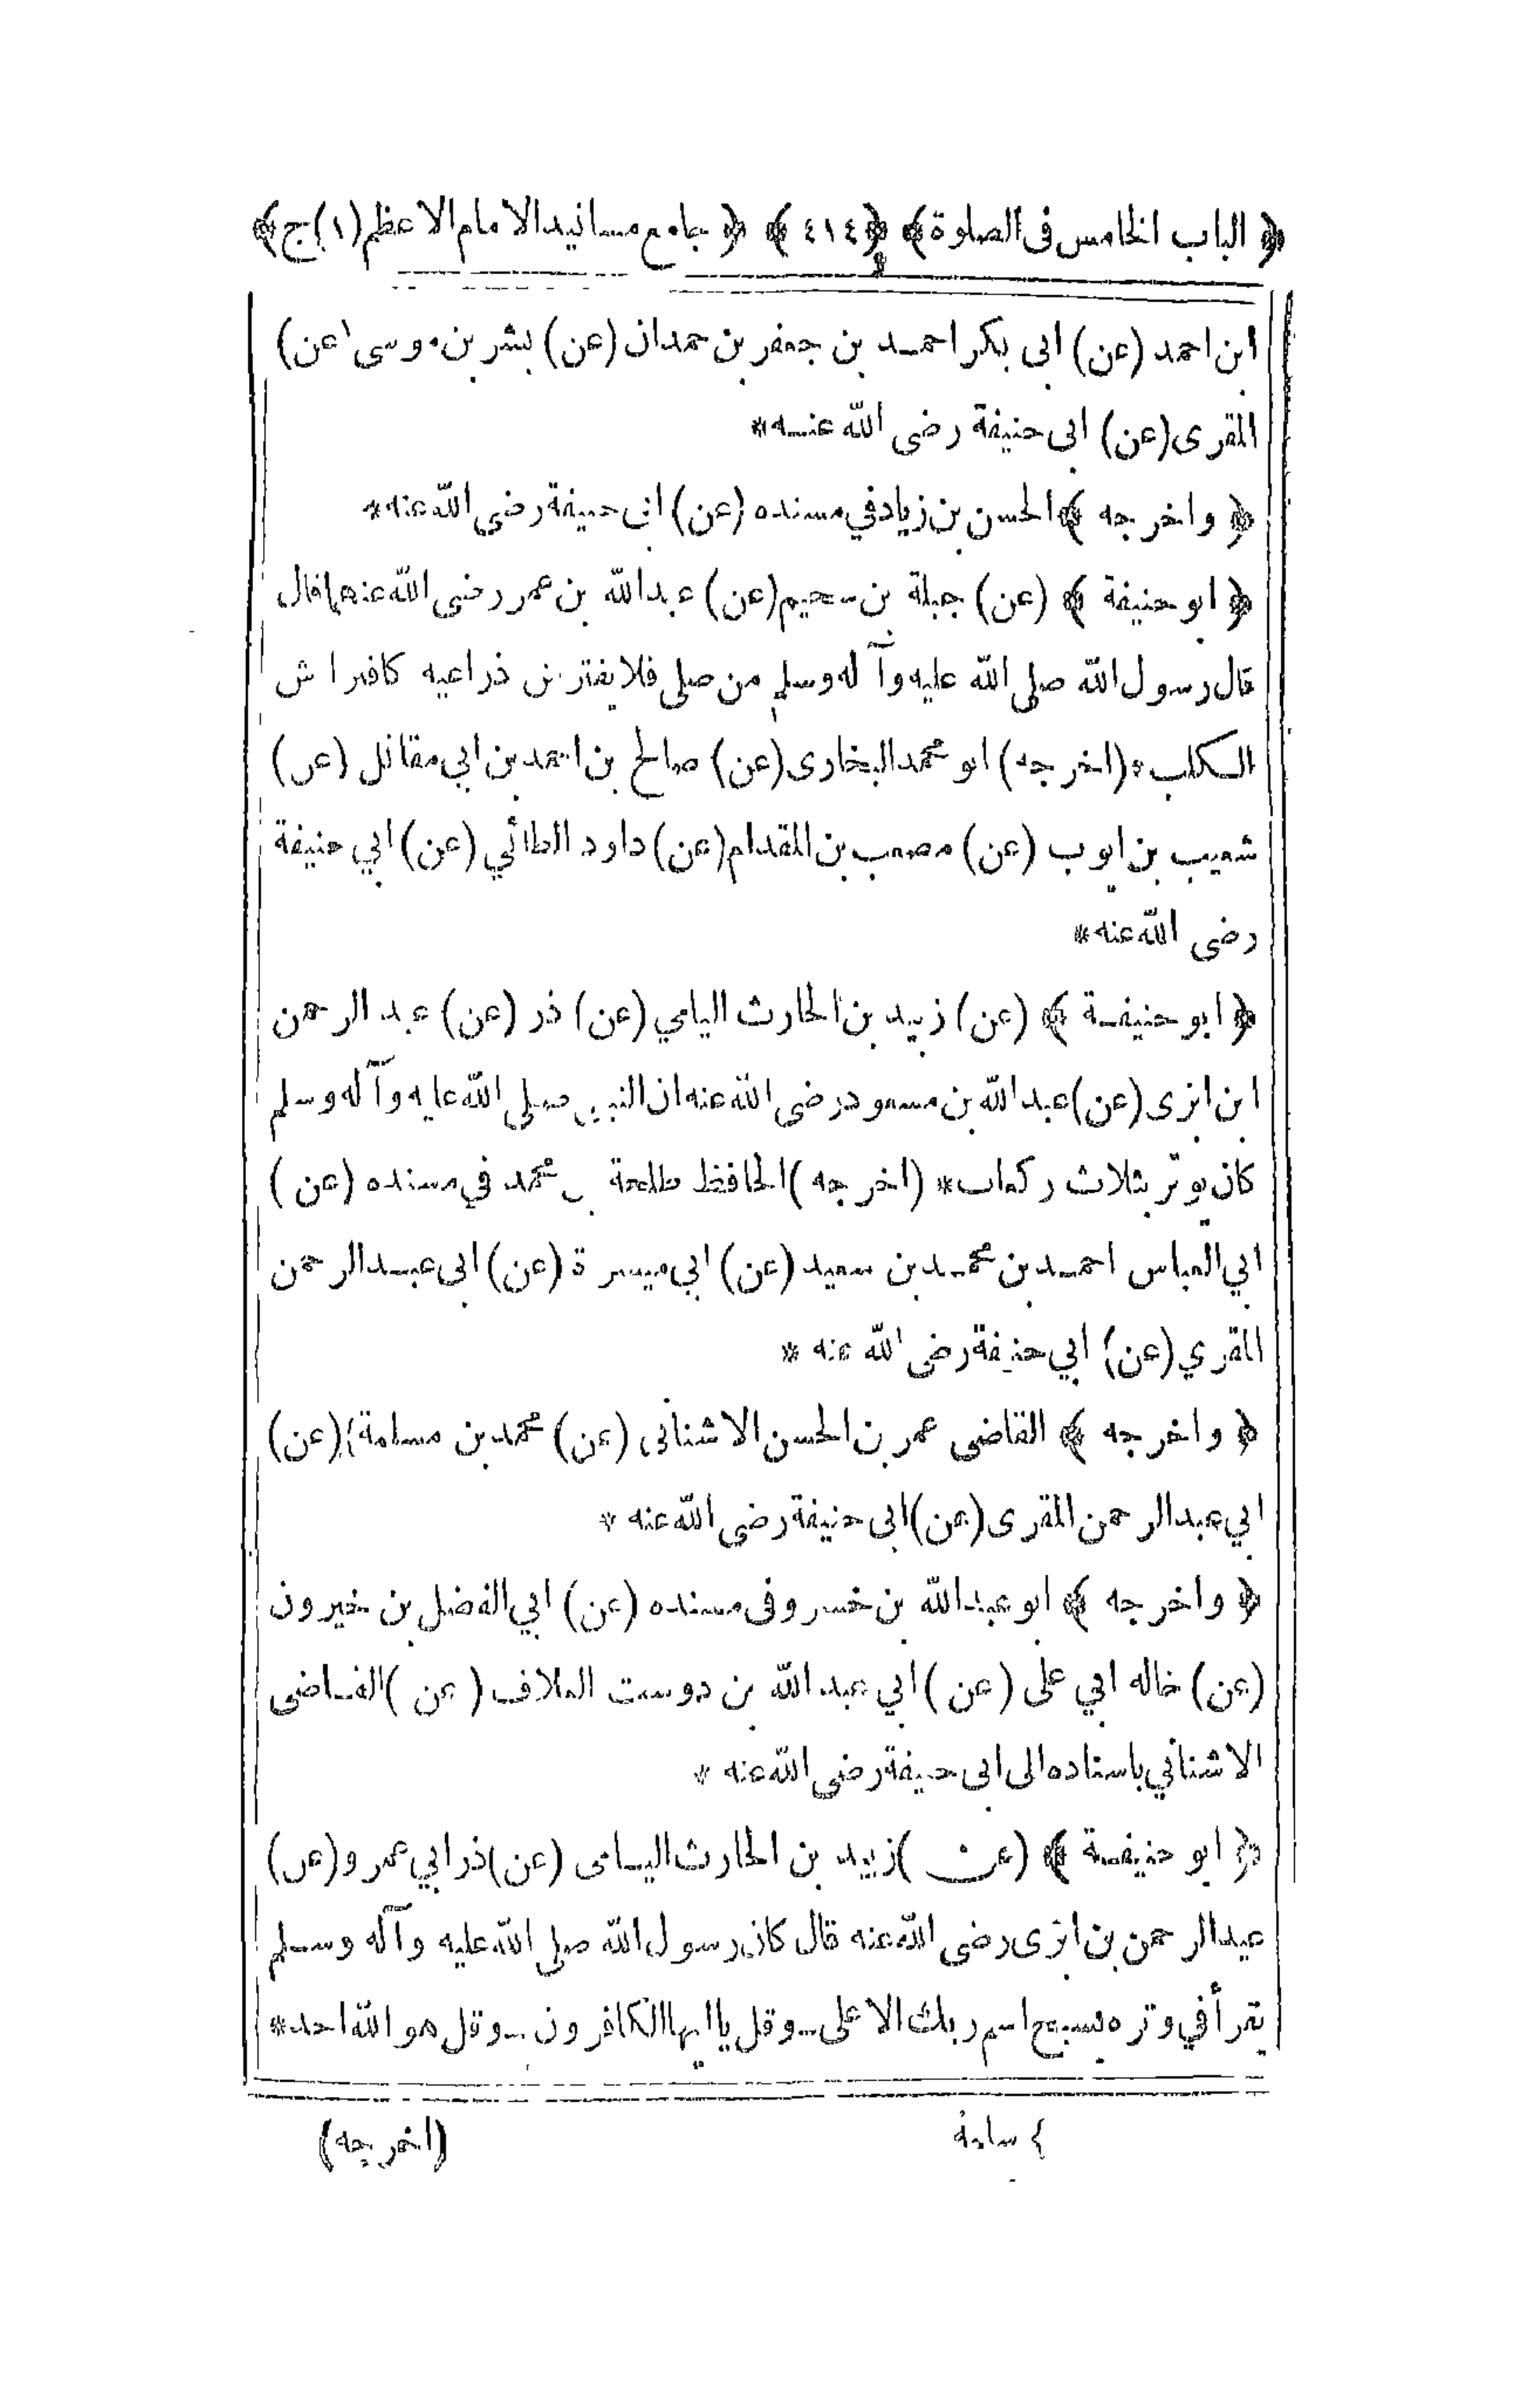 ﴿ الباب الخامس فى الصلوة ﴾ ﴿ ٤١٤ ﴾ ﴿ جامع مسانيد الامام الاعظم (١) ج ﴾
ابن احمد (عن) ابى بكر احمد بن جعفر بن حمدان (عن) بشر بن موسى (عن)
المقرى (عن) ابى حنيفة رضى الله عنه*
﴿ واخرجه ﴾ الحسن بن زياد في مسنده (عن) ابى حنيفة رضى الله عنه*
﴿ ابو حنيفة ﴾ (عن) جبلة بن سحيم (عن) عبد الله بن عمر رضى الله عنهما قال
قال رسول الله صلى الله عليه وآله وسلم من صلى فلا يفترش ذراعيه كافتراش
الكلب* (اخرجه) ابو محمد البخارى (عن) صالح بن احمد بن ابي مقاتل (عن)
شعيب بن ايوب (عن) مصعب بن المقدام (عن) داود الطائي (عن) ابي حنيفة
رضى الله عنه*
﴿ ابو حنيفة ﴾ (عن) زبيد بن الحارث اليامي (عن) ذر (عن) عبد الرحمن
ابن ابزى (عن) عبد الله بن مسعود رضى الله عنه ان النبي صلى الله عليه وآله وسلم
كان يوتر بثلاث ركعات* (اخرجه) الحافظ طلحة بن محمد في مسنده (عن)
ابي العباس احمد بن محمد بن سعيد (عن) ابي ميسرة (عن) ابى عبد الرحمن
المقري (عن) ابي حنيفة رضى الله عنه *
﴿ واخرجه ﴾ القاضى عمر بن الحسن الاشنانى (عن) محمد بن مسلمة (عن)
ابي عبد الرحمن المقرى (عن) ابى حنيفة رضى الله عنه *
﴿ واخرجه ﴾ ابو عبد الله بن خسرو فى مسنده (عن) ابي الفضل بن خيرون
(عن) خاله ابي على (عن) ابي عبد الله بن دوست العلاف (عن) القاضى
الاشناني باسناده الى ابى حنيفة رضى الله عنه *
﴿ ابو حنيفة ﴾ (عن) زبيد بن الحارث اليامى (عن) ذر ابي عمرو (عن)
عبد الرحمن بن ابزى رضى الله عنه قال كان رسول الله صلى الله عليه وآله وسلم
يقرأ في وتره بسبح اسم ربك الاعلى ــ وقل يا ايها الكافرون ــ وقل هو الله احد*
(اخرجه)